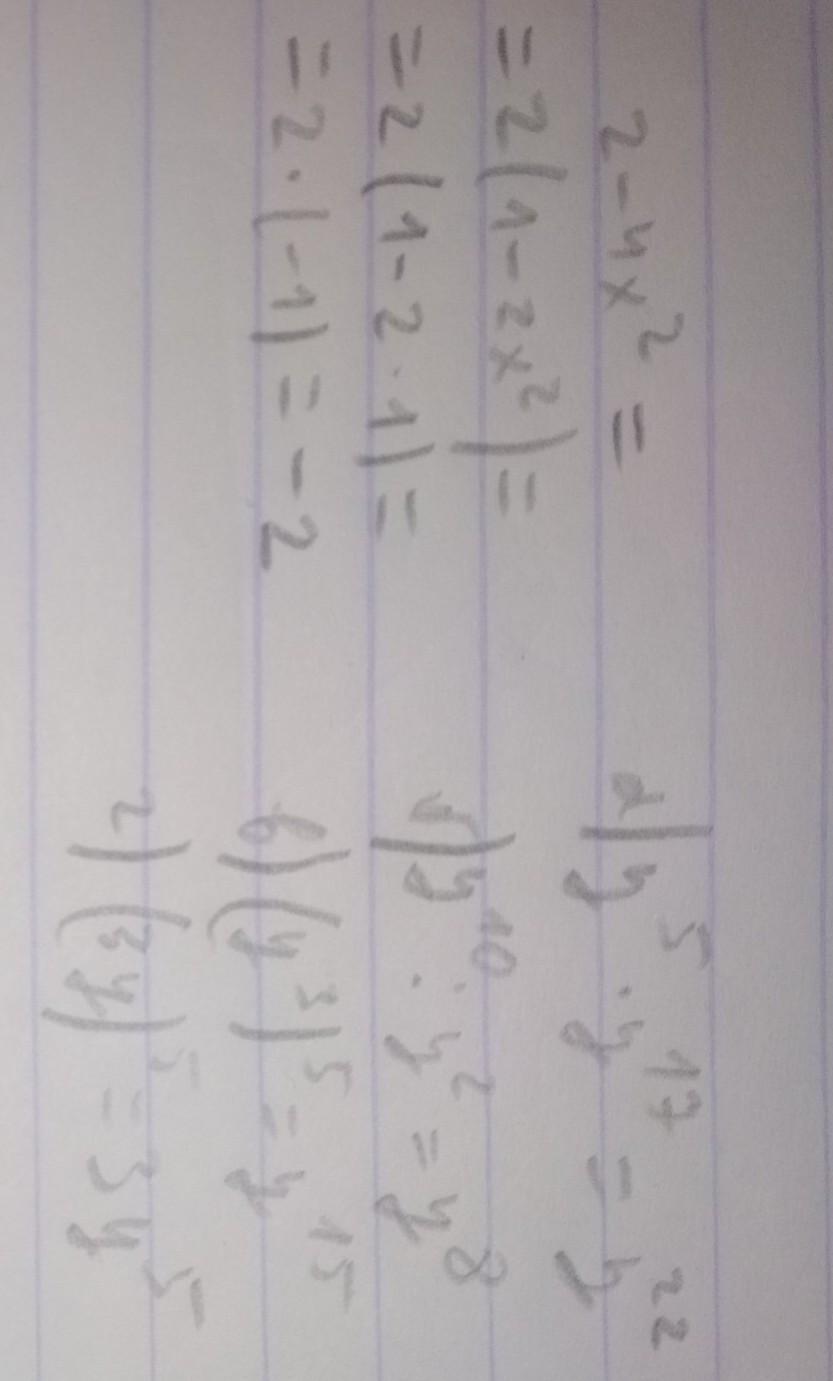 2-4x² =
=2(1-2x²)=
=2(1-2·1)=
=2·(-1)=-2
а) y⁵·y¹⁷=y²²
б) y¹⁰:y²=y⁸
в) (y³)⁵=y¹⁵
г) (3y)⁵=3y⁵